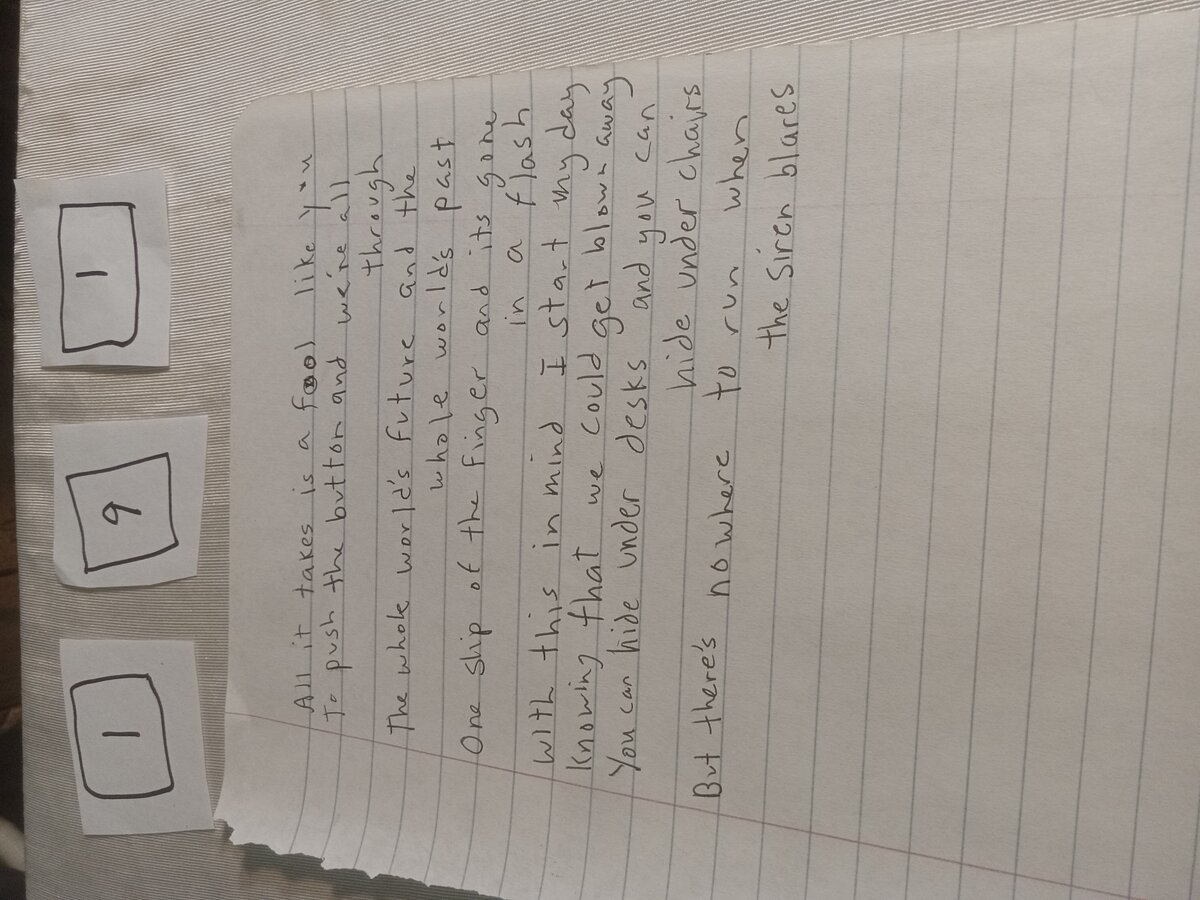 1 9 1
All it takes is a fool like you
To push the button and we're all
through
The whole world's future and the
whole world's past
One Slip of the finger and its gone
in a flash
With this in mind I start my day
Knowing that we could get blown away
You can hide under desks and you can
hide under chairs
But there's nowhere to run when
the Siren blares